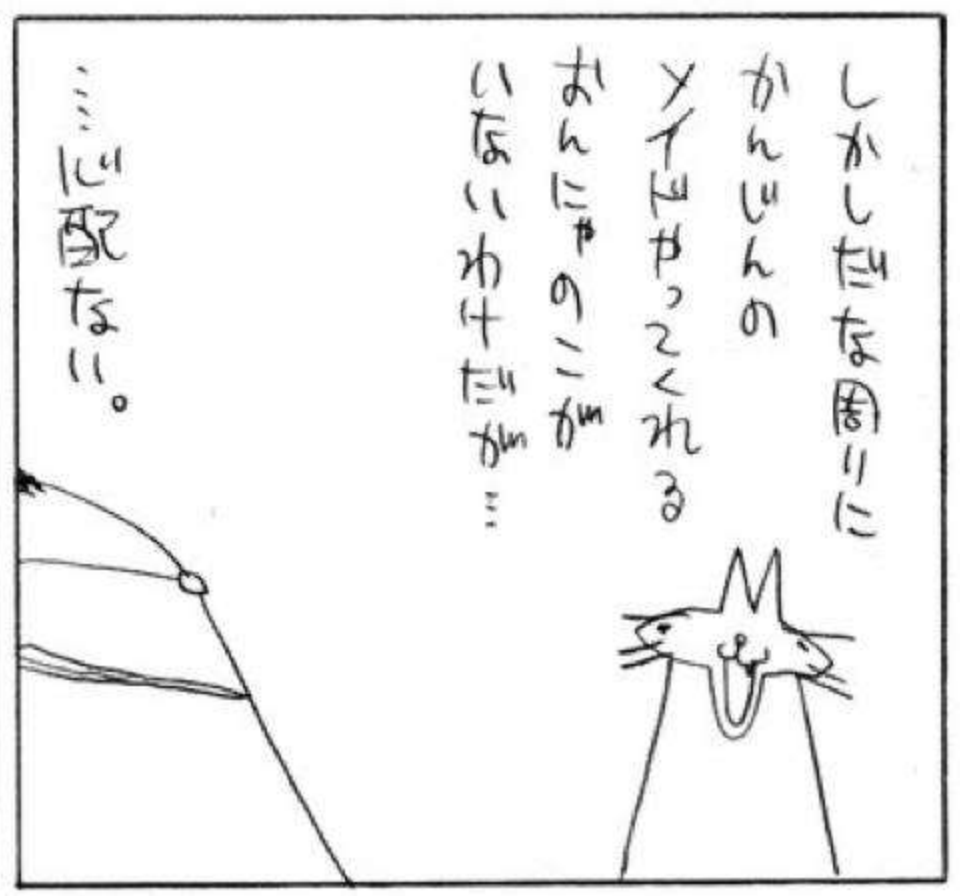 しかしだな周りに
かんじんの
メイドやってくれる
おんにゃのこが
いないわけだが…
……心配ない。